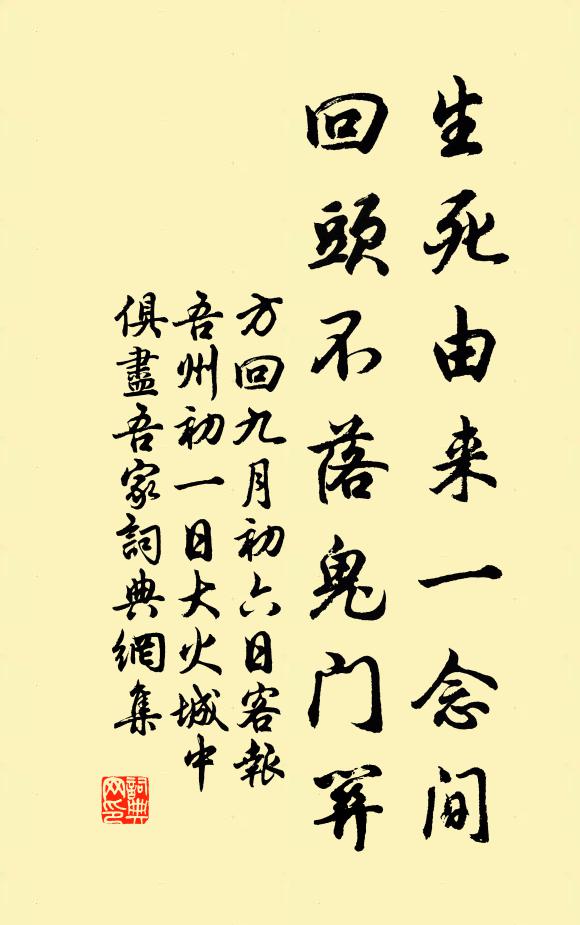 生死由来一念间
回頭不落鬼门关
方回九月初六日客報
吾州初一日大火城中
俱盡吾家詞典網集
詞典网印